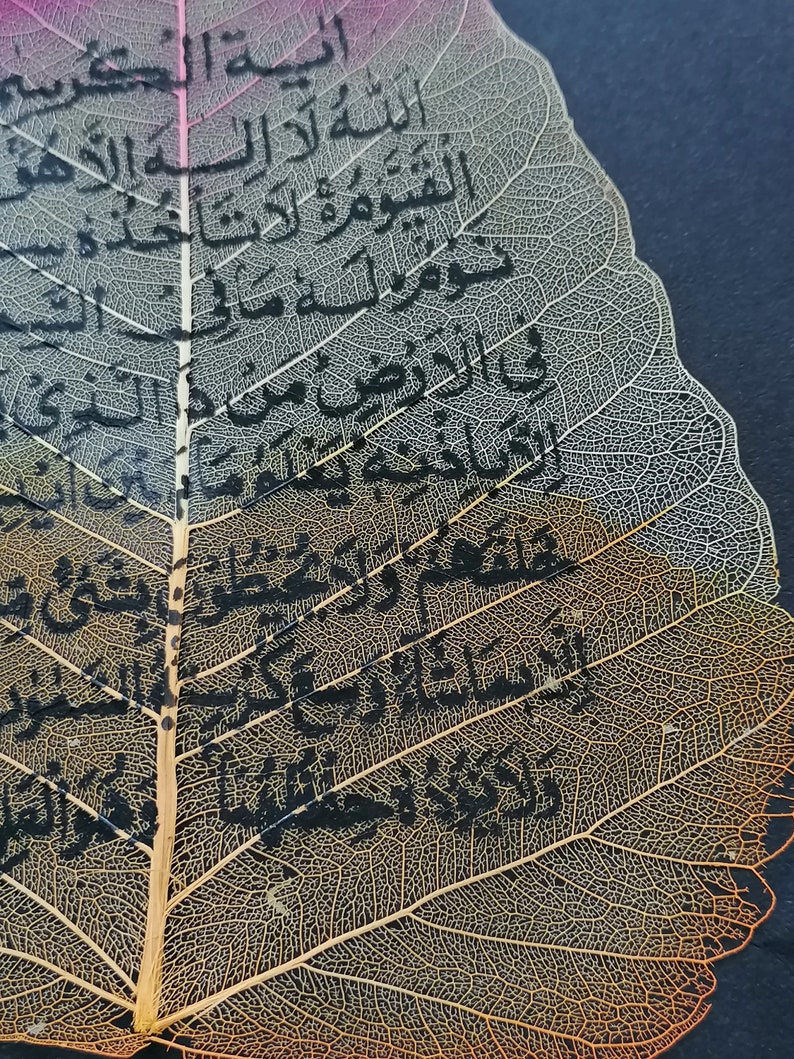 اية الكرسي
اللهُ لَا اِلـٰهَ اِلَّا هُوَ
الْقَيُّوْمُ لَا تَأْخُذُهٗ
نَوْمٌ لَهٗ مَا فِى
فِى الْاَرْضِ مَنْ ذَا الَّذِىْ
اِلَّا بِاِذْنِهٖ يَعْلَمُ مَا بَيْنَ
خَلْفَهُمْ وَلَا يُحِيْطُوْنَ بِشَىْءٍ
اِلَّا بِمَا شَآءَ وَسِعَ
وَلَا يَئُوْدُهٗ حِفْظُهُمَا وَهُوَ